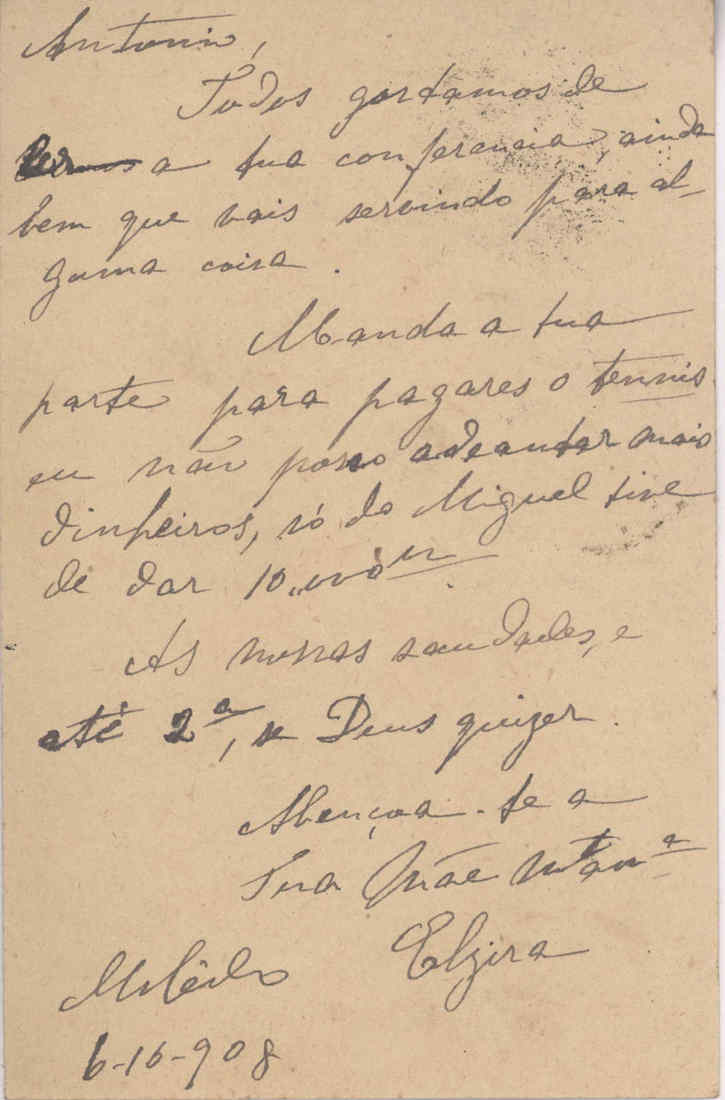 Antonio,
Todos gostamos de
ler a tua conferencia, ainda
bem que vais servindo para al-
guma coisa.
Manda a tua
parte para pagares o tennis
eu não posso adeantar mais
dinheiros, só do Miguel tive
de dar 10
As nossas saudades, e
até 2ª, se Deus quizer.
Abençoa-te a
Tua Mãe mto amª
Elzira
6-16-908